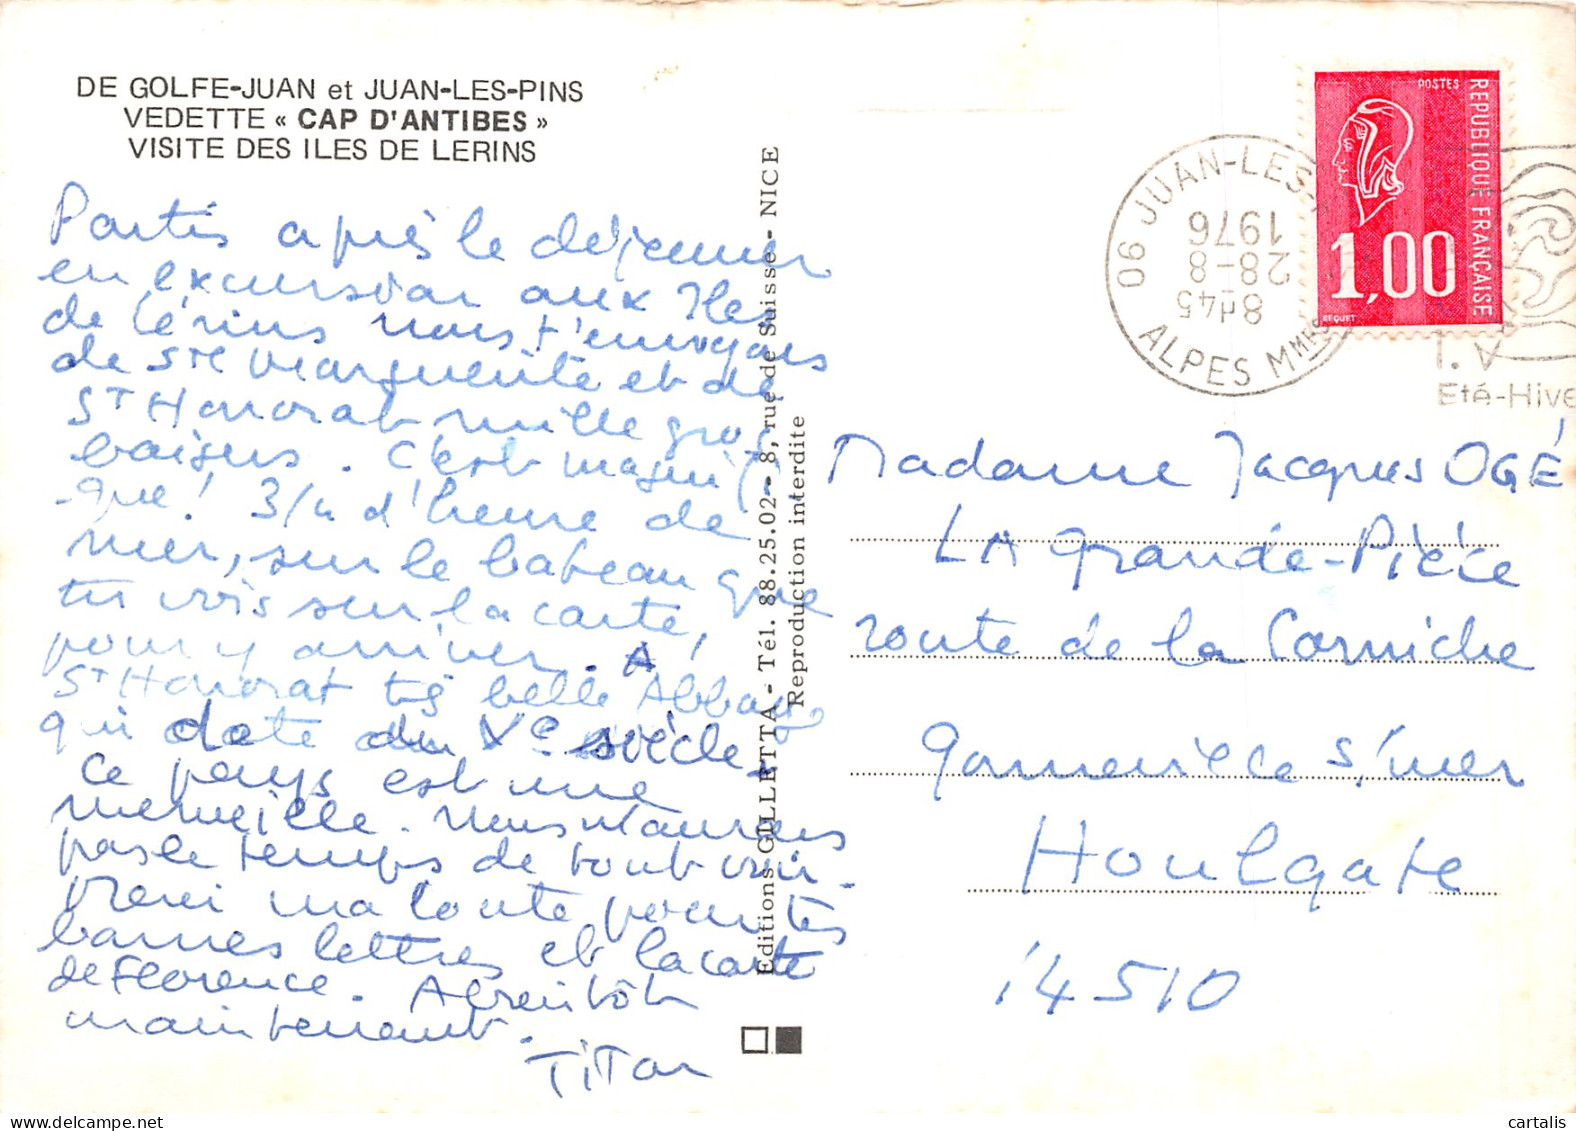 DE GOLFE-JUAN et JUAN-LES-PINS
VEDETTE « CAP D'ANTIBES »
VISITE DES ILES DE LERINS
Partis après le déjeuner
en excursion aux Iles
de Lérins nous t'envoyons
de Ste Marguerite et de
St Honorat mille gros
baisers. C'est magnifi
-que! 3/4 d'heure de
mer, sur le bateau que
tu vois sur la carte,
pour y arriver. A
St Honorat très belle Abbaye
qui date du Ve siècle.
Ce pays est une
merveille. Nous n'aurons
pas le temps de tout voir.
Merci ma toute pour tes
bonnes lettres et la carte
de Florence. A bientôt
maintenant.
Titan
Editions GILLETTA - Tél. 88.25.02 - 8, rue de Suisse - NICE
Reproduction interdite
POSTES
REPUBLIQUE FRANÇAISE
1,00
BEQUET
06 JUAN-LES-
8H45
28-8
1976
ALPES MMES
T.V
Eté-Hive
Madame Jacques OGÉ
LA Grande-Pièce
route de la Corniche
Gonneville s/mer
Houlgate
14510
cartalis